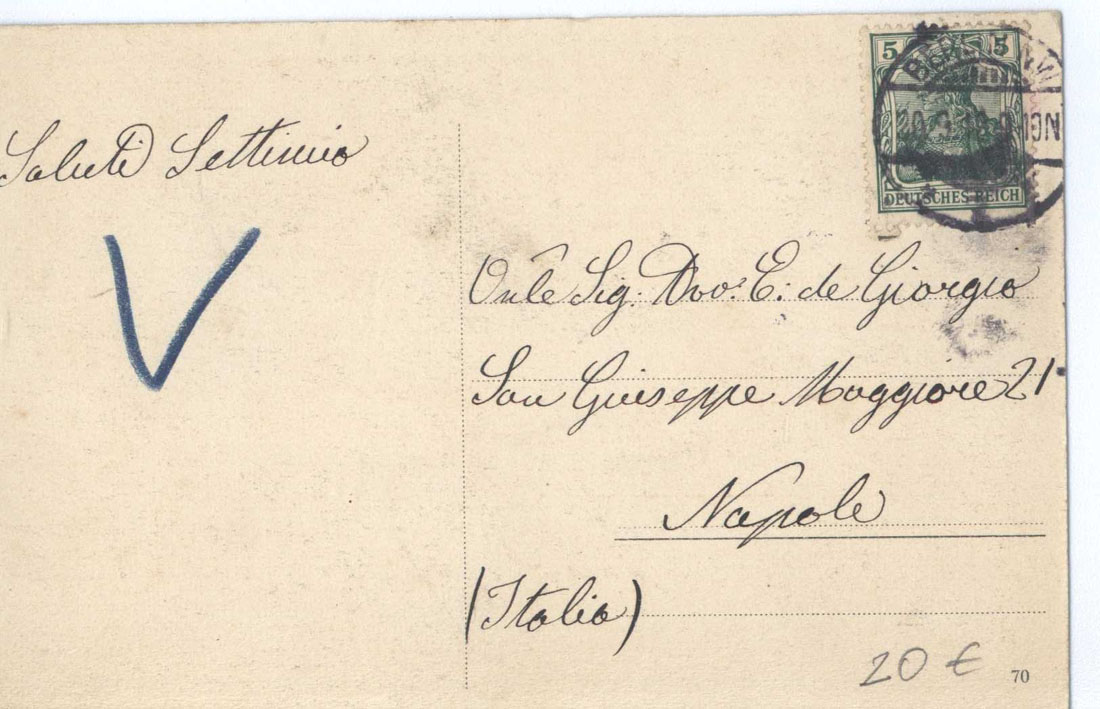 Saluti Settimio
V
5 5
BERLIN NW
DEUTSCHES REICH
Onle Sig. Avv. E. de Giorgio
San Giuseppe Maggiore 21
Napole
(Italia)
20 €
70